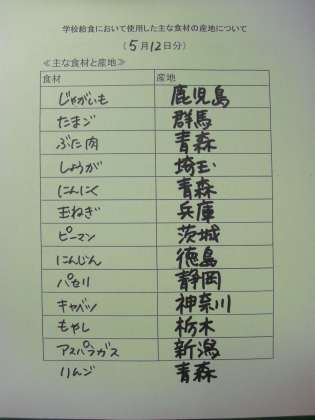 学校給食において使用した主な食材の産地について
(5月12日分)
≪主な食材と産地≫
食材 産地
じゃがいも 鹿児島
たまご 群馬
ぶた肉 青森
しょうが 埼玉
にんにく 青森
玉ねぎ 兵庫
ピーマン 茨城
にんじん 徳島
パセリ 静岡
キャベツ 神奈川
もやし 栃木
アスパラガス 新潟
りんご 青森